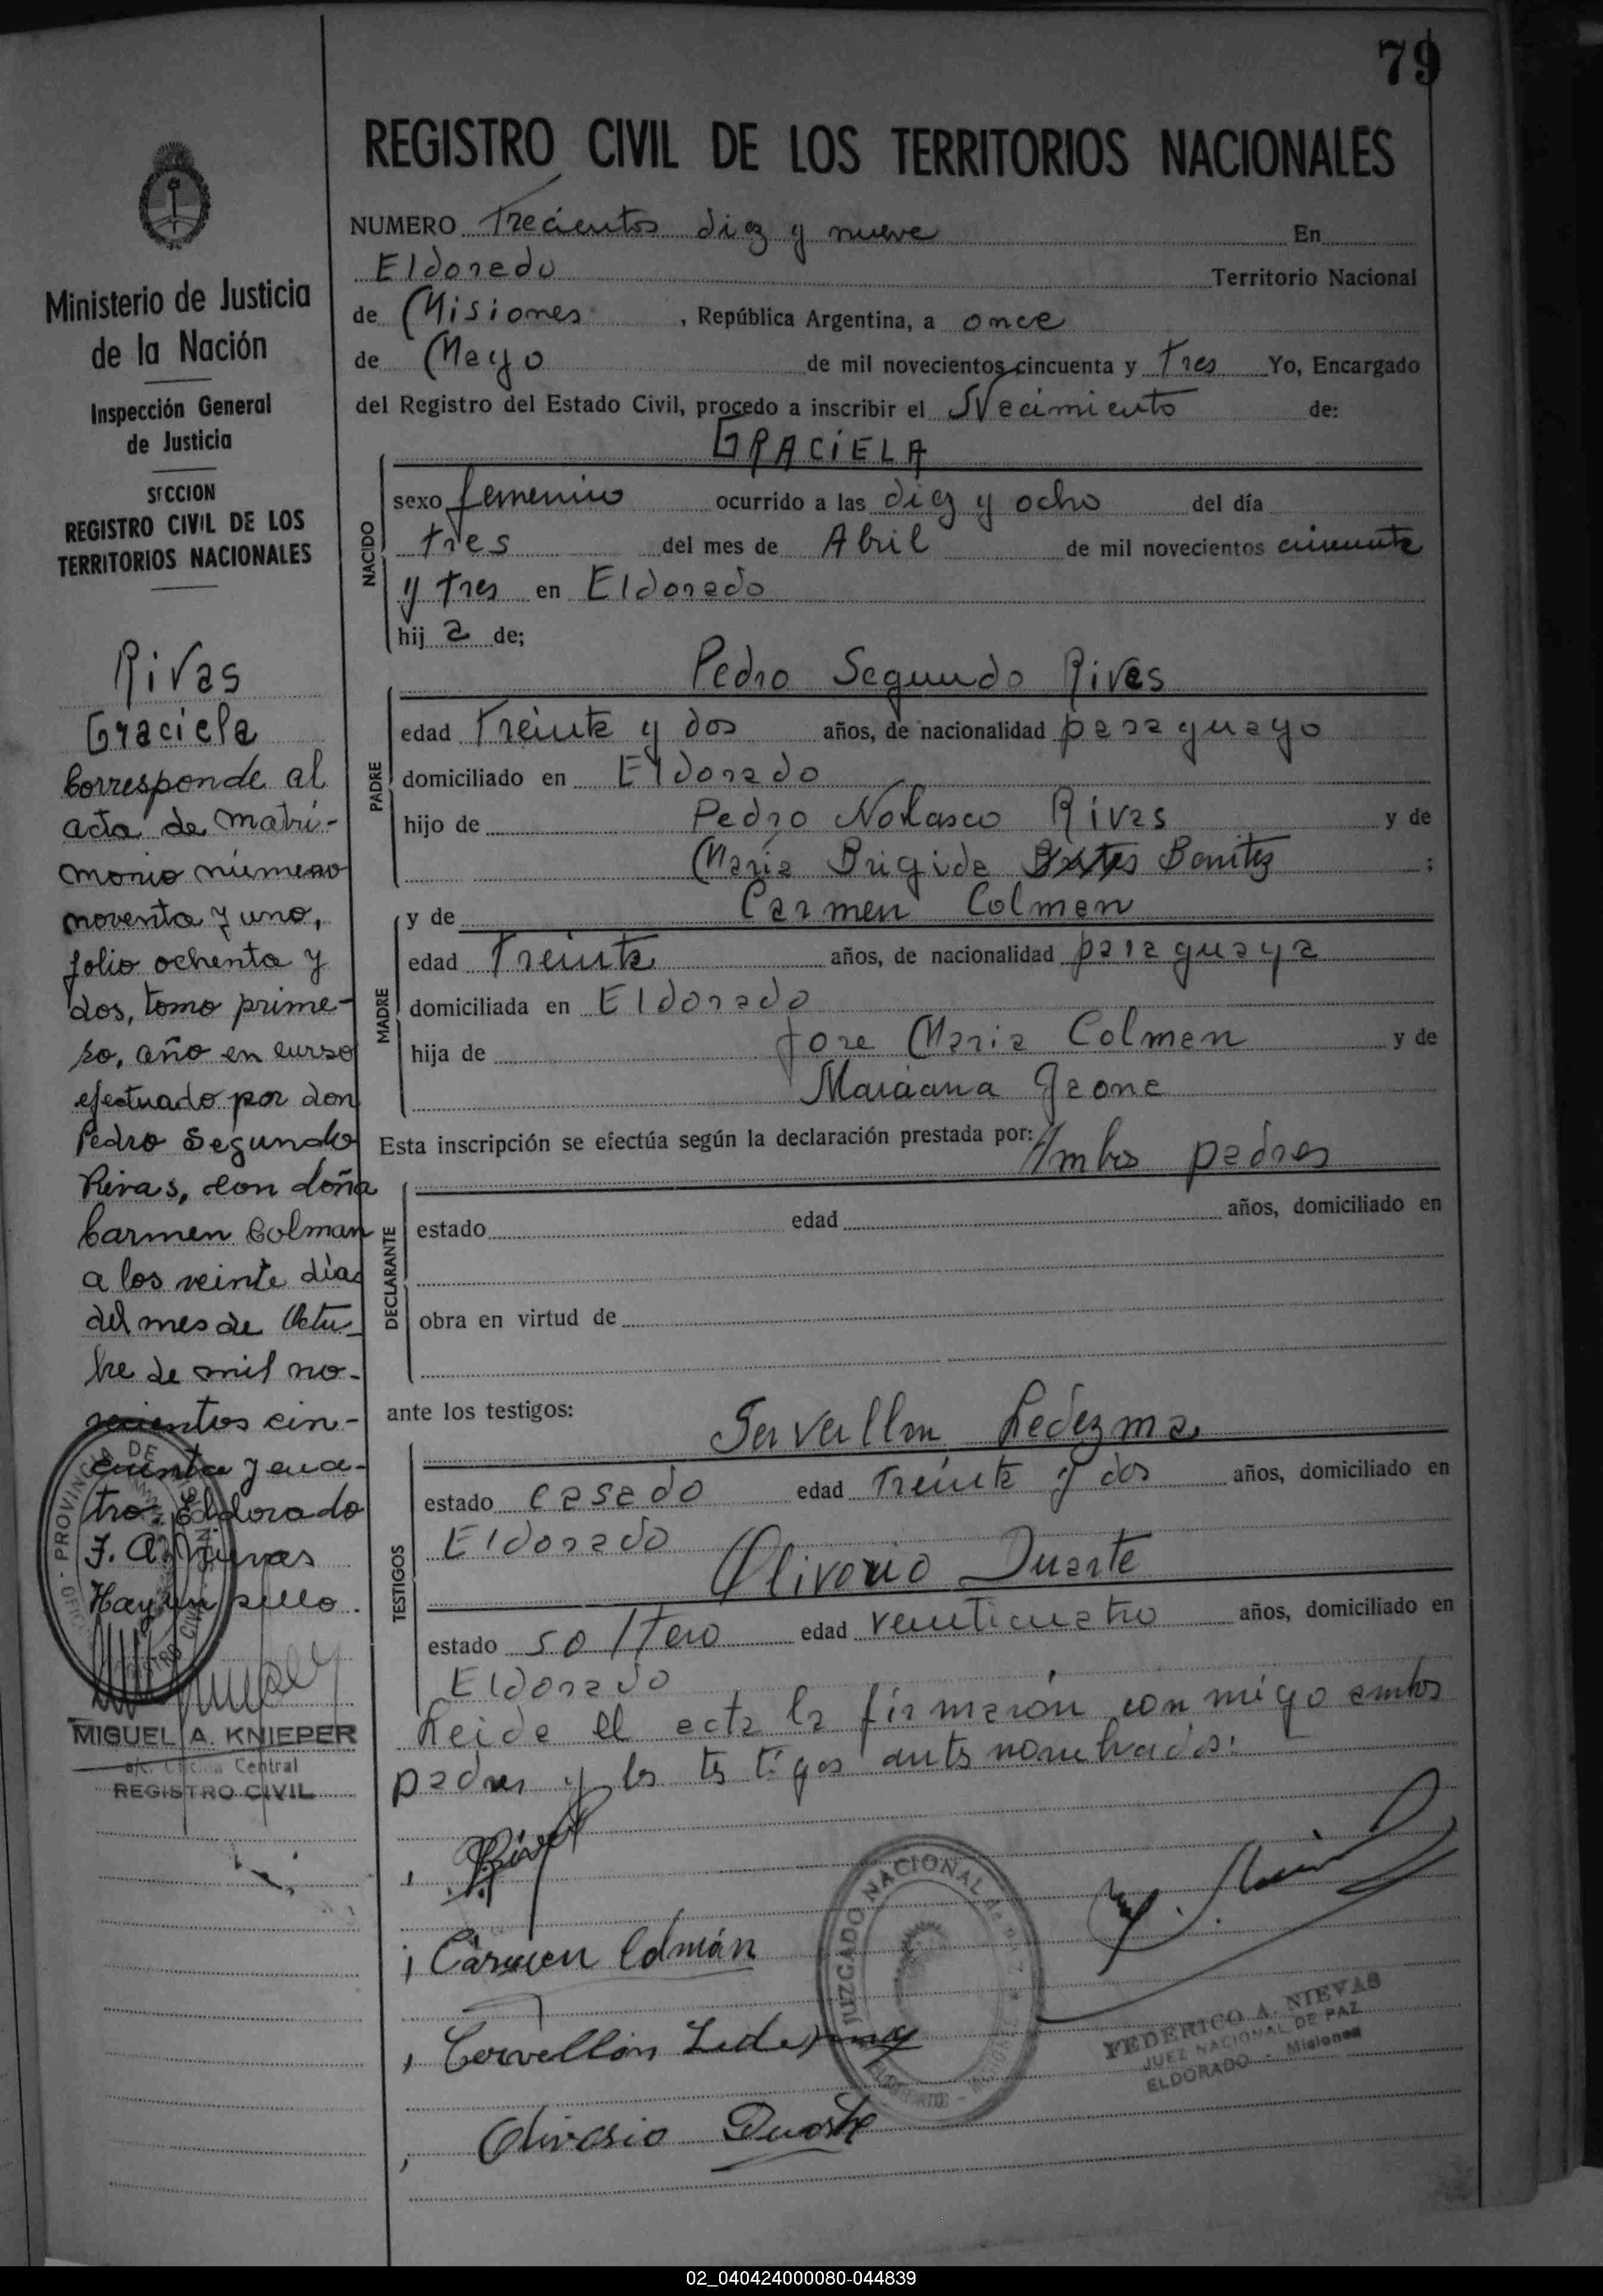 79
REGISTRO CIVIL DE LOS TERRITORIOS NACIONALES
NUMERO Trecientos diez y nueve En
Eldorado Territorio Nacional
de Misiones, República Argentina, a once
de Mayo de mil novecientos cincuenta y Tres Yo, Encargado
del Registro del Estado Civil, procedo a inscribir el Nacimiento de:
GRACIELA
NACIDO
sexo femenino ocurrido a las diez y ocho del día
tres del mes de Abril de mil novecientos cincuenta
y tres en Eldorado
hij a de;
Pedro Segundo Rivas
PADRE
edad Treinta y dos años, de nacionalidad paraguayo
domiciliado en Eldorado
hijo de Pedro Nolasco Rivas y de
María Brigida Benitez;
MADRE
y de Carmen Colman
edad Treinta años, de nacionalidad paraguaya
domiciliada en Eldorado
hija de Jose Maria Colman y de
Mariana
Esta inscripción se efectúa según la declaración prestada por: Ambos padres
DECLARANTE
estado edad años, domiciliado en
obra en virtud de
ante los testigos:
TESTIGOS
Servellon Ledezma
estado casado edad Treinta y dos años, domiciliado en
Eldorado
Oliverio Duarte
estado soltero edad veinticuatro años, domiciliado en
Eldorado
Leida el acta la firmaron con migo ambos
padres y los testigos antes nombrados:
Rivas
Carmen Colmán
Cervellón Ledezma
Oliverio Duarte
JUZGADO NACIONAL DE PAZ
ELDORADO - MISIONES
FEDERICO A. NIEVAS
JUEZ NACIONAL DE PAZ
ELDORADO - Misiones
Ministerio de Justicia
de la Nación
Inspección General
de Justicia
SECCION
REGISTRO CIVIL DE LOS
TERRITORIOS NACIONALES
Rivas
Graciela
Corresponde al
acta de matri-
monio número
noventa y uno,
folio ochenta y
dos, tomo prime-
ro, año en curso
efectuado por don
Pedro Segundo
Rivas, con doña
Carmen Colman
a los veinte días
del mes de Octu-
bre de mil no-
vecientos cin-
cuenta y cua-
tro. Eldorado
F. A. Nievas
Hay un sello.
PROVINCIA DE MISIONES
REGISTRO CIVIL
MIGUEL A. KNIEPER
a/c. Oficina Central
REGISTRO CIVIL
02_040424000080-044839